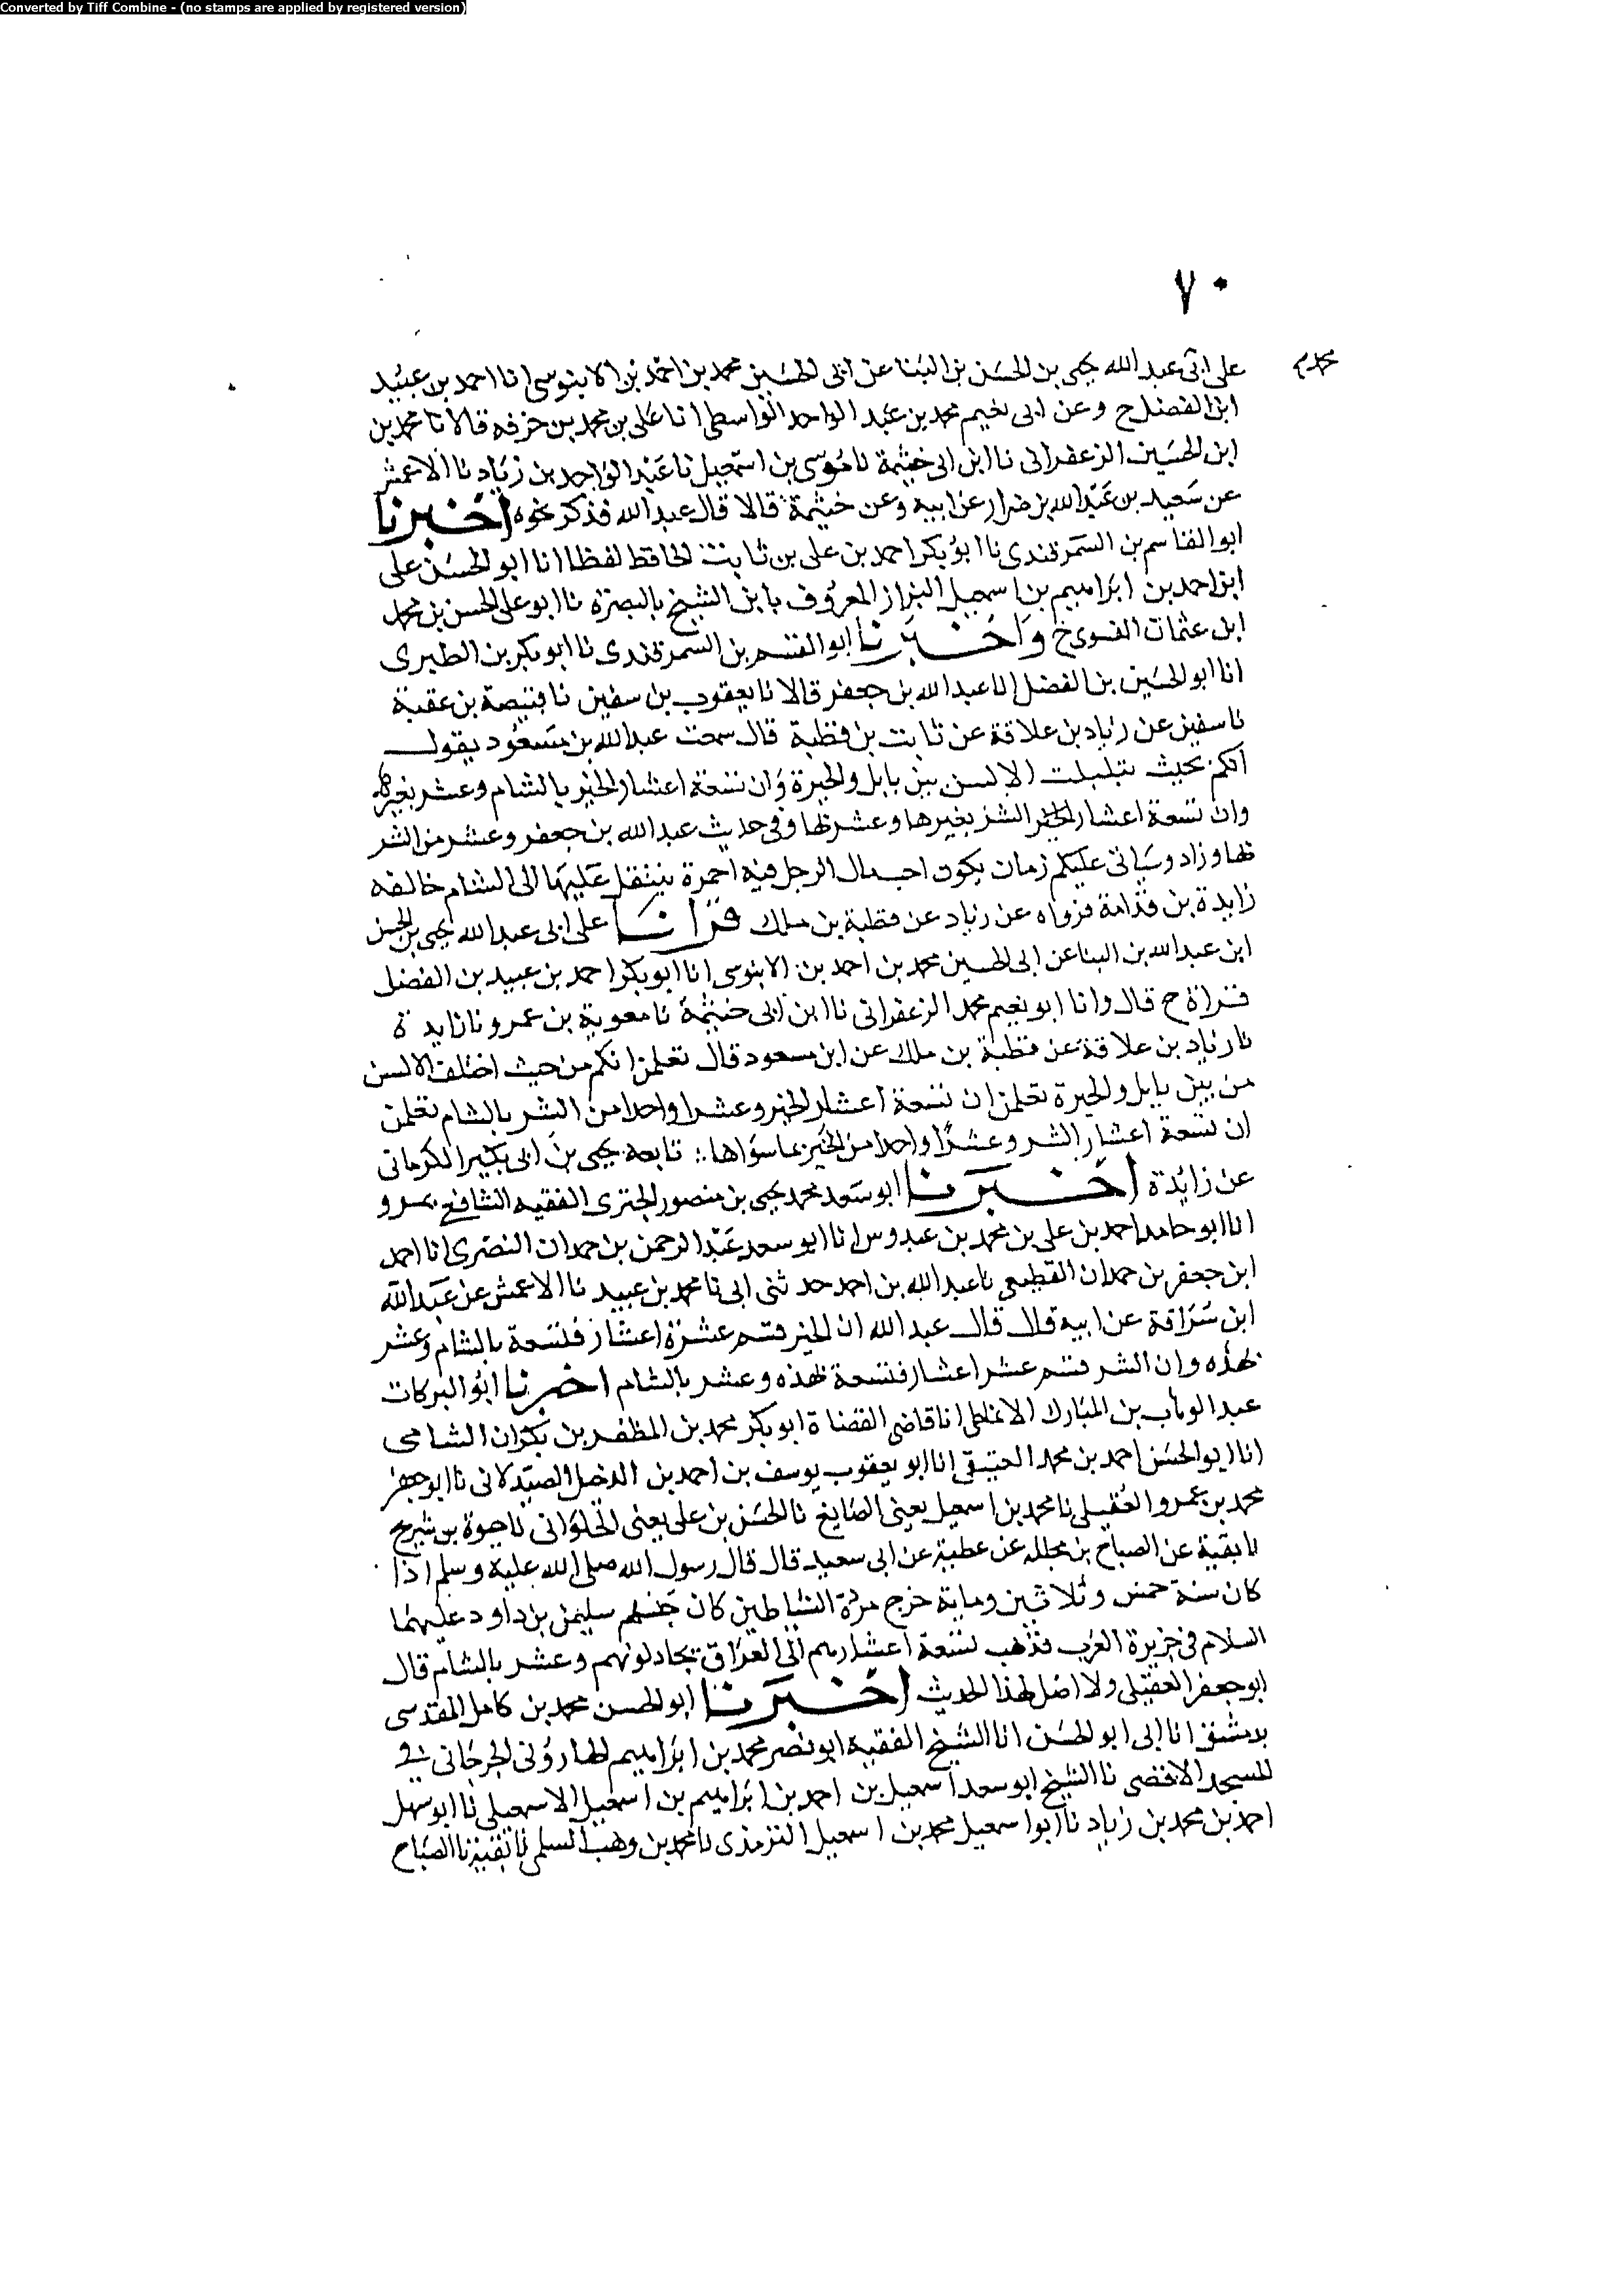 Converted by Tiff Combine - (no stamps are applied by registered version)
٧٠
على ابى عبد الله يحيى بن الحسن بن البنا عن ابى الحسين محمد بن احمد بن الابنوسى انا احمد بن عبيد
ابن الفضل ح وعن ابى نعيم محمد بن عبد الواحد الواسطى انا على بن محمد بن خزفه قالا نا محمد بن
ابن الحسين الزعفرانى نا ابن ابى خيثمة نا موسى بن اسمعيل نا عبد الواحد بن زياد نا الاعمش
عن سعيد بن عبد الله بن ضرار عن ابيه وعن خيثمة قالا قال عبد الله فذكر نحوه اخبرنا
ابو القاسم بن السمرقندى نا ابو بكر احمد بن على بن ثابت الحافظ لفظا انا ابو الحسن على
ابن احمد بن ابراهيم بن اسمعيل البزاز المعروف بابن الشيخ بالبصرة نا ابو على الحسن بن محمد
ابن عثمان الفسوى ح واخبرنا ابو القسم بن السمرقندى نا ابو بكر بن الطبرى
انا ابو الحسين بن الفضل انا عبد الله بن جعفر قالا نا يعقوب بن سفين نا قبيصة بن عقبة
نا سفين عن زياد بن علاقة عن ثابت بن قطبة قال سمعت عبد الله بن مسعود يقول
انكم بحيث تبلبلت الالسن بين بابل والحيرة وان تسعة اعشار الخير بالشام وعشر بغيرها
وان تسعة اعشار الشر بغيرها وعشر بها وفى حديث عبد الله بن جعفر وعشر من الشر
بها وزاد وسياتى عليكم زمان يكون احب مال الرجل فيه احمرة ينتقل عليها الى الشام خالفه
زايدة بن قدامة فرواه عن زياد عن قطبة بن ملك قرانا على ابى عبد الله يحيى بن الحسن
ابن عبد الله بن البنا عن ابى الحسين محمد بن احمد بن الابنوسى انا ابو بكر احمد بن عبيد بن الفضل
قراة ح قال وانا ابو نعيم محمد الزعفرانى نا ابن ابى خيثمة نا معوية بن عمرو نا زايدة
نا زياد بن علاقة عن قطبة بن ملك عن ابن مسعود قال تعلمن انكم من حيث اختلفت الالسن
من بين بابل والحيرة تعلمن ان تسعة اعشار الخير وعشرا واحدا من الشر بالشام تعلمن
ان تسعة اعشار الشر وعشرا واحدا من الخير بما سواها تابعه يحيى بن ابى بكير الكرمانى
عن زائدة اخبرنا ابو سعد محمد يحيى بن منصور الجنزى الفقيه الشافعى بمرو
انا ابو حامد احمد بن على بن محمد بن عبدوس انا ابو سعد عبد الرحمن بن حمدان النصرى انا احمد
ابن جعفر بن حمدان القطيعى نا عبد الله بن احمد حد ثنى ابى نا محمد بن عبيد نا الاعمش عن عبد الله
ابن سراقة عن ابيه قال قال عبد الله ان الخير قسم عشرة اعشار فتسعة بالشام وعشر
بهذه وان الشر قسم عشر اعشار فتسعة بهذه وعشر بالشام اخبرنا ابو البركات
عبد الوهاب بن المبارك الانماطى انا قاضى القضاة ابو بكر محمد بن المظفر بن بكران الشامى
انا ابو الحسن احمد بن محمد العتيقى انا ابو يعقوب يوسف بن احمد بن الدخيل الصيدلانى نا ابو جعفر
محمد بن عمرو العقيلى نا محمد بن اسمعيل يعنى الصايغ نا الحسن بن على يعنى الحلوانى نا حيوة بن شريح
نا بقية عن الصباح بن مجالد عن عطية عن ابى سعيد قال قال رسول الله صلى الله عليه وسلم اذا
كان سنة خمس وثلاثين وماية خرج مردة الشياطين كان حبسهم سليمن بن داود عليهما
السلام فى جزيرة العرب فذهب تسعة اعشارهم الى العراق يجادلونهم وعشر بالشام قال
ابو جعفر العقيلى ولا اصل لهذا الحديث اخبرنا ابو الحسن محمد بن كامل المقدسى
بدمشق انا ابى ابو الحسن انا الشيخ الفقيه ابو نصر محمد بن ابراهيم الهارونى الجرجانى فى
المسجد الاقصى نا الشيخ ابو سعد اسمعيل بن احمد بن ابراهيم بن اسمعيل الاسمعيلى نا ابو سهل
احمد بن محمد بن زياد نا ابو اسمعيل محمد بن اسمعيل الترمذى نا محمد بن وهب السلمى نا بقية نا الصباح